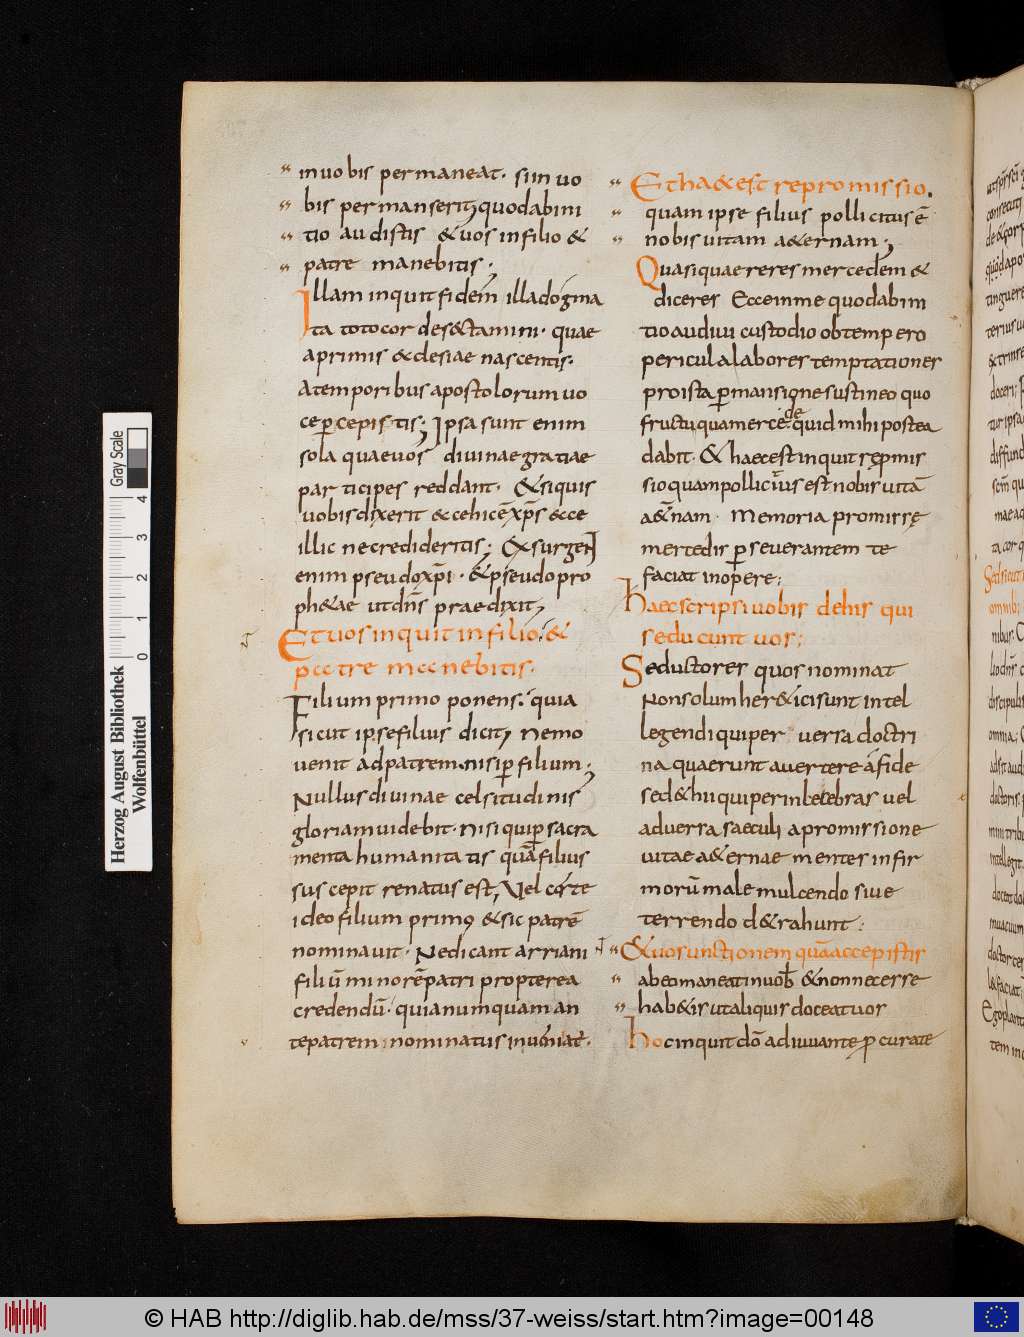 in uobis permaneat · si in uo
bis permanserit quod ab ini
tio audistis & uos in filio &
patre manebitis;
Illam inquit fidem illa dogma
ta toto cor de sectamini · quae
a primis ecclesiae nascentis ·
a temporibus apostolorum uo
ce pcepistis; Ipsa sunt enim
sola quae uos diuinae gratiae
participes reddant · & si quis
uobis dixerit ecce hic ē xp̄s ecce
illic ne credideritis; Exsurgent
enim pseudoxp̄i · & pseudopro
ph&ae ut dn̄s praedixit;
Et uos inquit in filio · &
patre manebitis ·
Filium primo ponens · quia
sicut ipse filius dicit; nemo
uenit ad patrem · nisi p filium;
Nullus diuinae celsitudinis
gloriam uidebit · nisi qui p sacra
menta humanitatis quā filius
suscepit renatus est, Vel certe
ideo filium primū & sic patrē
nominauit · Ne dicant arriani
filiū minorē patri propterea
credendū · quia numquam an
te patrem nominatus inueniat ·
Et ha& est repromissio ·
quam ipse filius pollicitus ē
nobis uitam a&ernam;
Quasi quaereres mercedem &
diceres Ecce in me quod ab ini
tio audiui custodio obtempero
pericula labores temptationes
pro ista pmansione sustineo quo
fructu qua mercede quid mihi postea
dabit · & haec est inquit repmis
sio quam pollicitus est nobis uitā
a&̄nam · Memoria promissę
mercedis pseuerantem te
faciat in opere;
haec scripsi uobis de his qui
seducunt uos;
Seductores quos nominat
Non solum her&icis sunt intel
legendi qui peruersa doctri
na quaerunt auertere a fide
sed & hii qui per inlecebras uel
aduersa saeculi a promissione
uitae a&ernae mentes infir
morū male mulcendo siue
terrendo d&rahunt:
& uos unctionem quā accepistis
ab eo maneat in uob̄ & non necesse
hab&is ut aliquis doceat uos
hoc inquit dō adiuuante p curate
Herzog August Bibliothek
Wolfenbüttel
Gray Scale
0 1 2 3 4
© HAB http://diglib.hab.de/mss/37-weiss/start.htm?image=00148